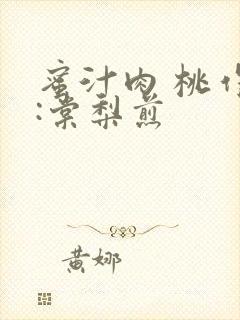 蜜汁肉桃 作
:棠梨煎
黄娜